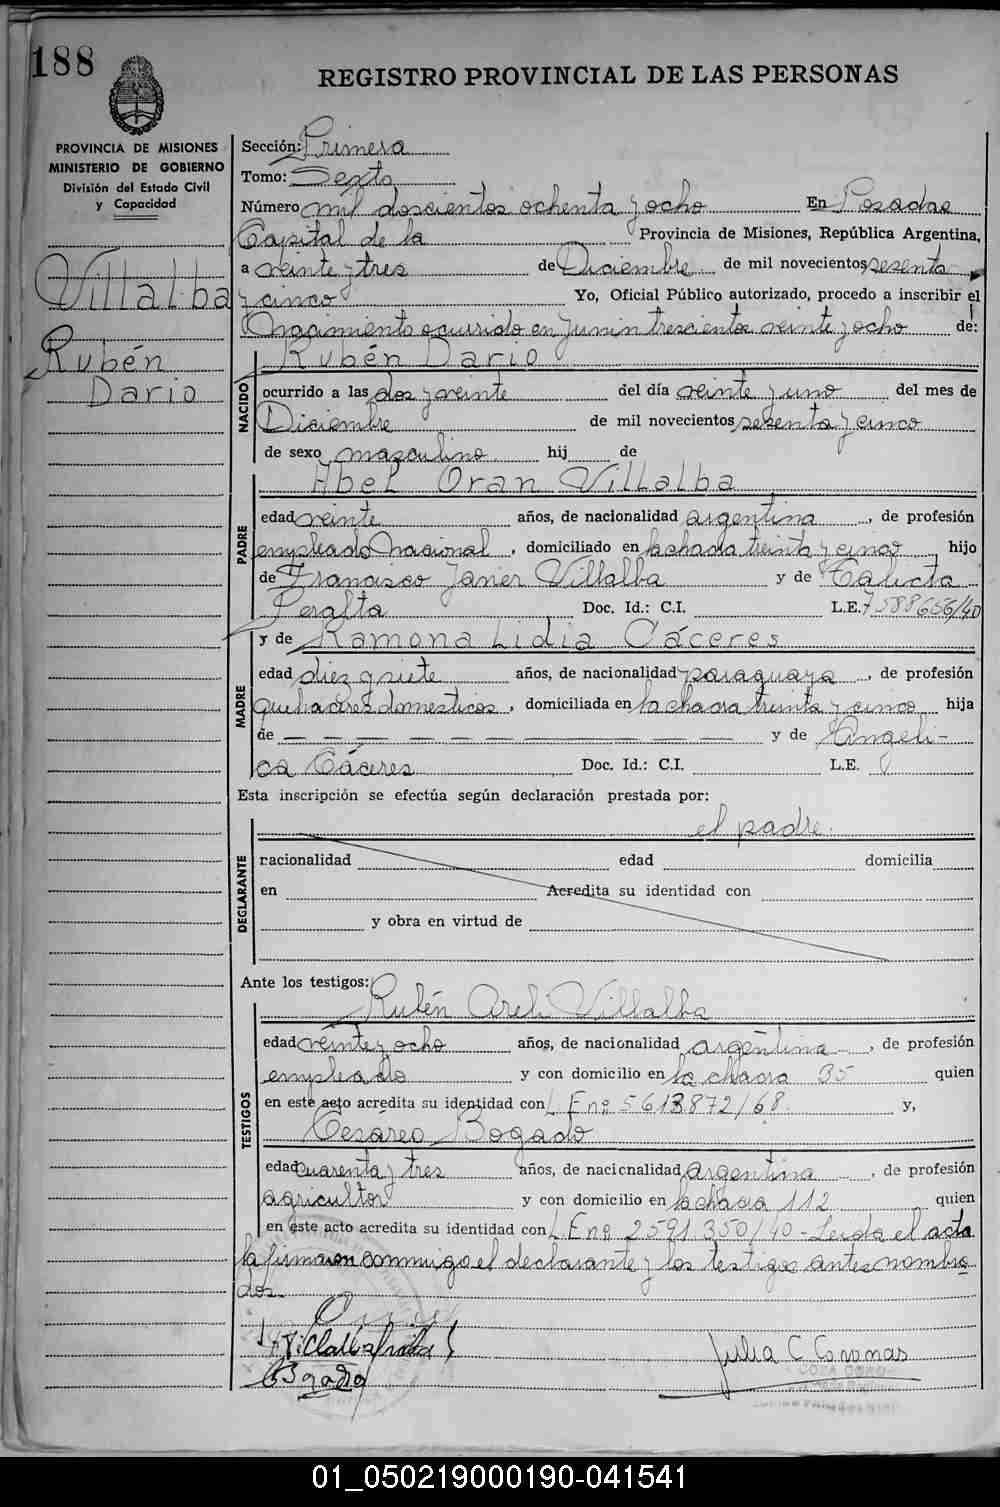 188
REGISTRO PROVINCIAL DE LAS PERSONAS
PROVINCIA DE MISIONES
MINISTERIO DE GOBIERNO
División del Estado Civil
y Capacidad
Villalba
Rubén
Dario
Sección: Primera
Tomo: Sexto
Número mil doscientos ochenta y ocho En Posadas
Capital de la Provincia de Misiones, República Argentina,
a veinte y tres de Diciembre de mil novecientos sesenta
y cinco Yo, Oficial Público autorizado, procedo a inscribir el
Nacimiento ocurrido en Junin trescientos veinte y ocho de:
NACIDO
Rubén Dario
ocurrido a las dos y veinte del día veinte y uno del mes de
Diciembre de mil novecientos sesenta y cinco
de sexo masculino hij de
PADRE
Abel Oran Villalba
edad veinte años, de nacionalidad argentina, de profesión
empleado Nacional, domiciliado en la chacra treinta y cinco hijo
de Francisco Javier Villalba y de Calicta
Peralta Doc. Id.: C.I. L.E. 7588656/40
y de Ramona Lidia Cáceres
MADRE
edad diez y siete años, de nacionalidad paraguaya, de profesión
quehaceres domesticos, domiciliada en la chacra treinta y cinco hija
de — — — — — — — — — — — y de Angeli-
ca Cáceres Doc. Id.: C.I. L.E.
Esta inscripción se efectúa según declaración prestada por:
el padre.
DECLARANTE
nacionalidad edad domicilia
en Acredita su identidad con
y obra en virtud de
Ante los testigos:
Rubén Areli Villalba
TESTIGOS
edad veinte y ocho años, de nacionalidad argentina, de profesión
empleado y con domicilio en la chacra 35 quien
en este acto acredita su identidad con L.E nº 5613872/68. y,
Cesáreo Bogado
edad cuarenta y tres años, de nacionalidad argentina, de profesión
agricultor y con domicilio en la chacra 112 quien
en este acto acredita su identidad con L.E nº 2591.350/40 - Leida el acta
la firmaron conmigo el declarante y los testigos antes nombra
dos.
Bogado
Julia C Coronas
01_050219000190-041541